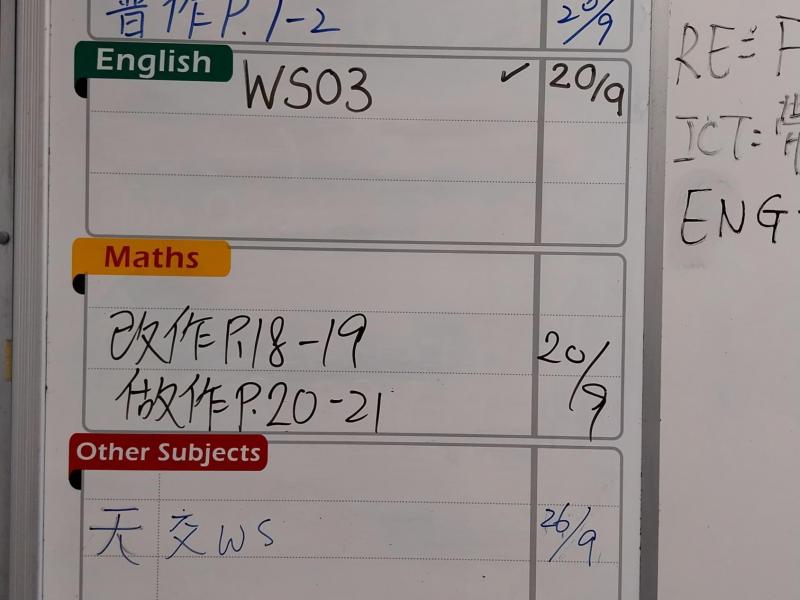 普作P.1-2 20/9
English
WS03 ✓ 20/9
Maths
改作P.18-19 20/9
做作P.20-21
Other Subjects
天 交WS 26/9
RE=
ICT=
ENG